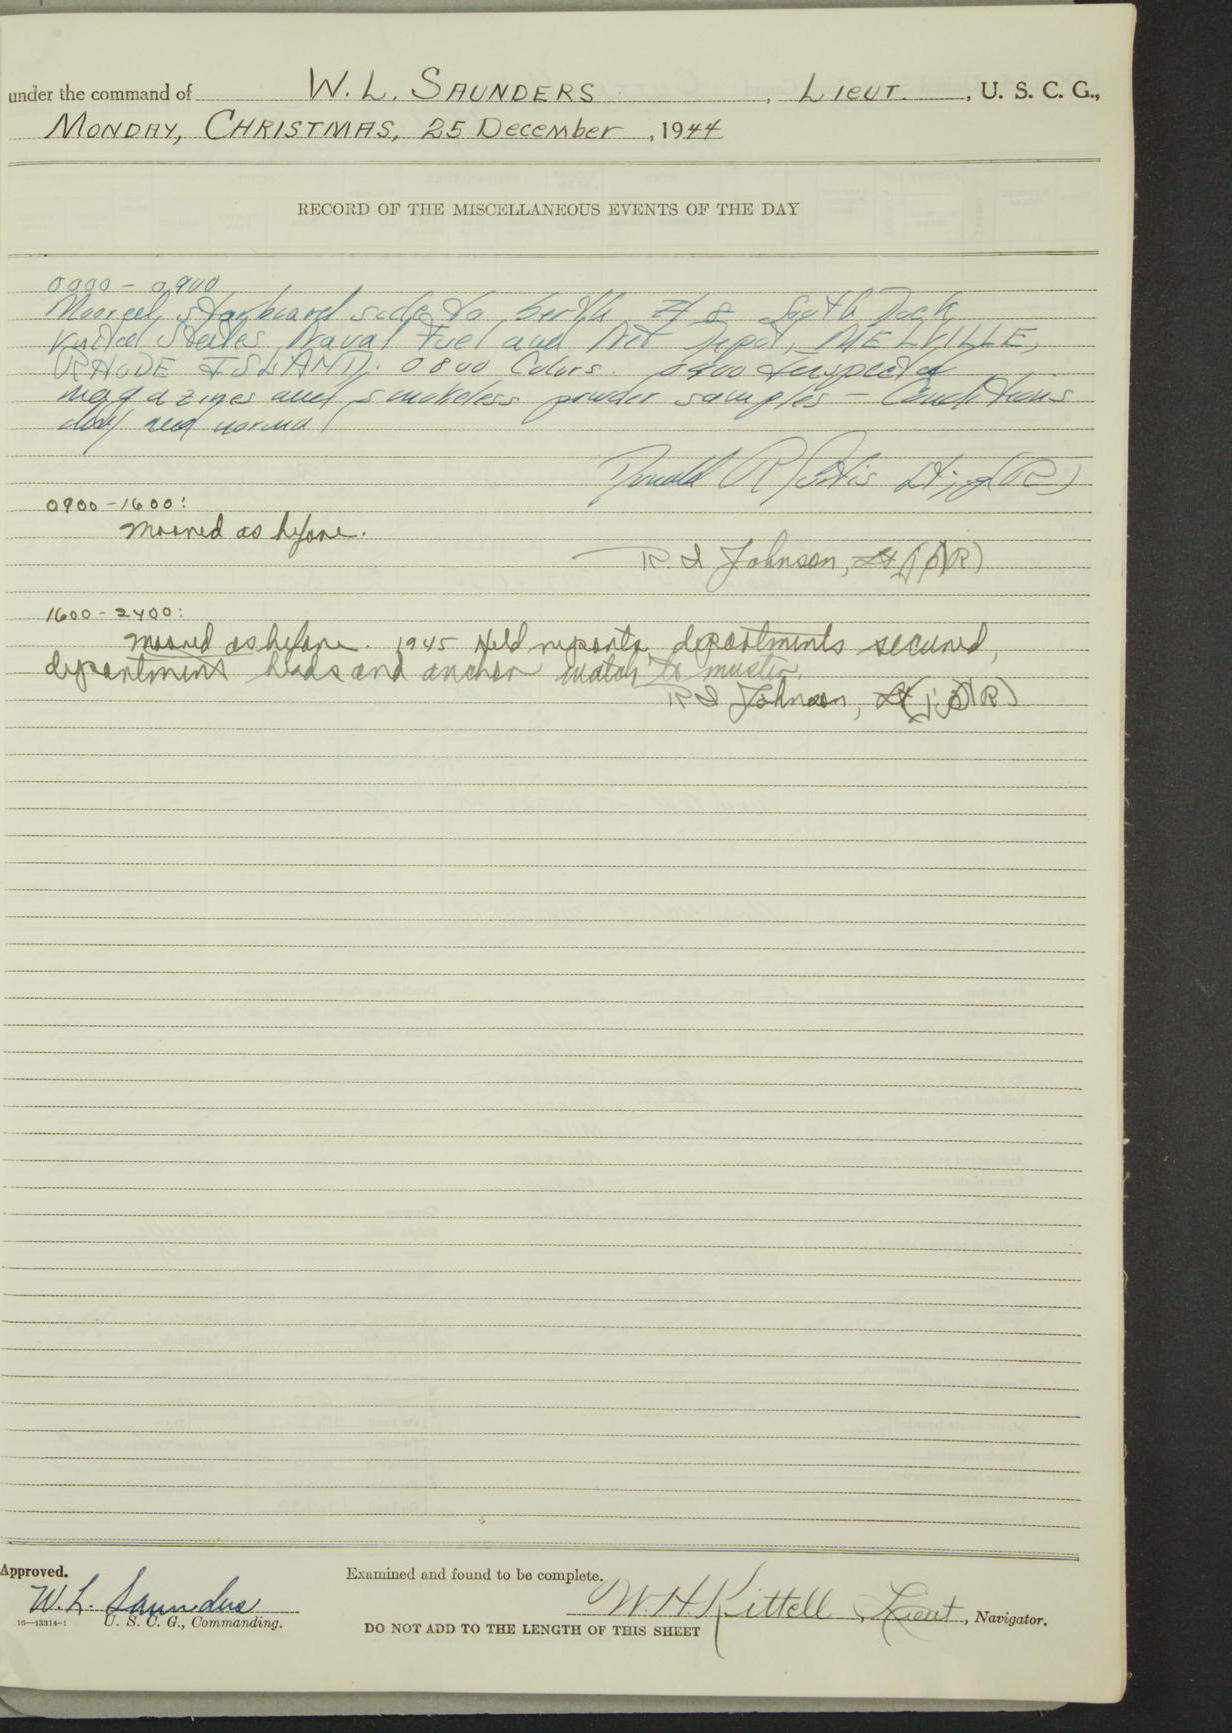 under the command of W. L. SAUNDERS, LIEUT., U. S. C. G.,
MONDAY, CHRISTMAS, 25 December, 1944
RECORD OF THE MISCELLANEOUS EVENTS OF THE DAY
0000 - 0900
Moored, starboard side to, berth # 8 South Dock
United States Naval Fuel and Net Depot, MELVILLE,
RHODE ISLAND. 0800 Colors. 0900 Inspected
magazines and smokeless powder samples - Conditions
dry and normal
Donald R. Lt. jg (R)
0900-1600:
Moored as before.
R I Johnson, Lt (jg)(R)
1600-2400:
Moored as before. 1945 Held reports, departments secured,
department heads and anchor watch to muster.
R I Johnson, Lt (jg)(R)
Approved.
Examined and found to be complete.
W. L. Saunders
W H Kittell, Lieut, Navigator.
16—13314-1 U. S. C. G., Commanding.
DO NOT ADD TO THE LENGTH OF THIS SHEET